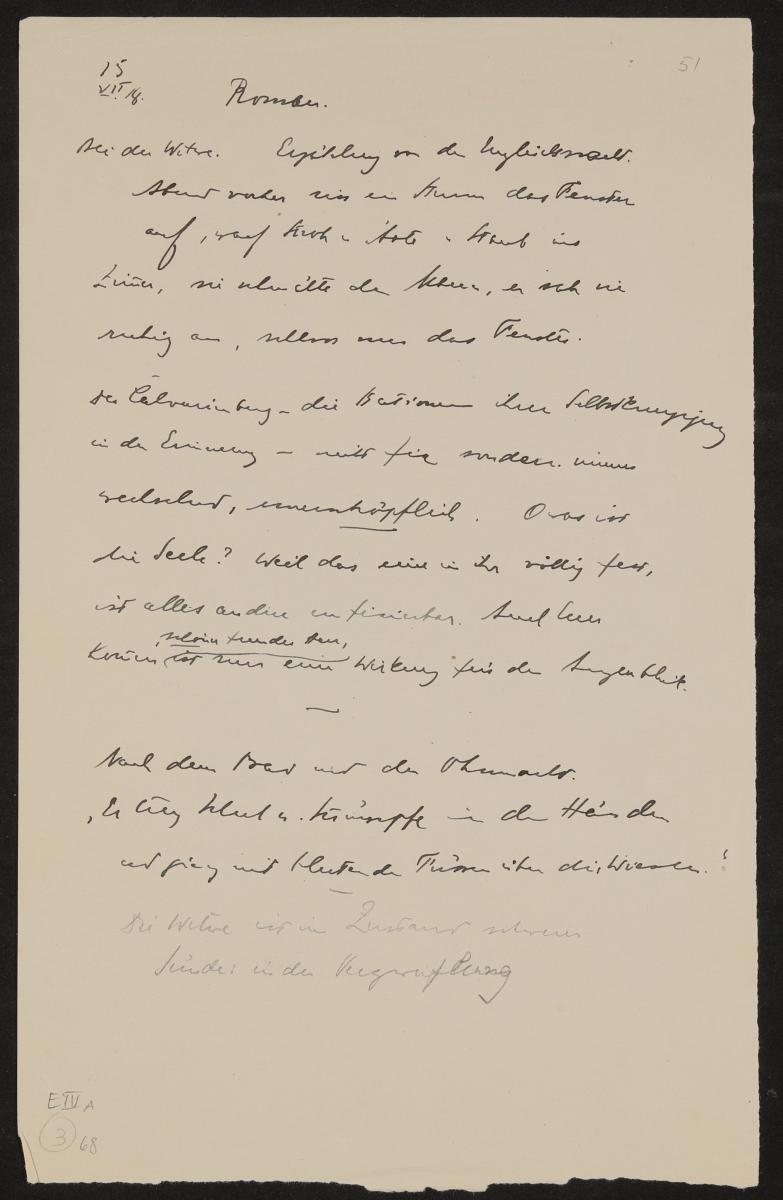 51
15
VII 18.
Romberg.
Bei der Witwe. Erzählung von der Unglücksnacht.
Abend vorher riss ein Sturm das Fenster
auf, warf Stroh u Äste u Staub ins
Zimmer, sie schüttelte den, er sah sie
ruhig an, schloss nur das Fenster.
Der Calvarienberg – die Stationen ihrer Selbstkreuzigung
in der Erinnerung – nicht fix sondern immer
wechselnd, unerschöpflich. O was ist
die Seele? Weil das eine in ihr völlig fest,
ist alles andere unfixierbar. Auch
schöner
nur eine Wirkung für den Augenblick.
Nach dem Brand und der Ohnmacht.
„Er trug Schuh u. Strümpfe in den Händen
und ging mit blutenden Füssen über die Wiesen."
Die Witwe ist im Zustand schwerer
Sünde: in der Verzweiflung
E IV A
3 68